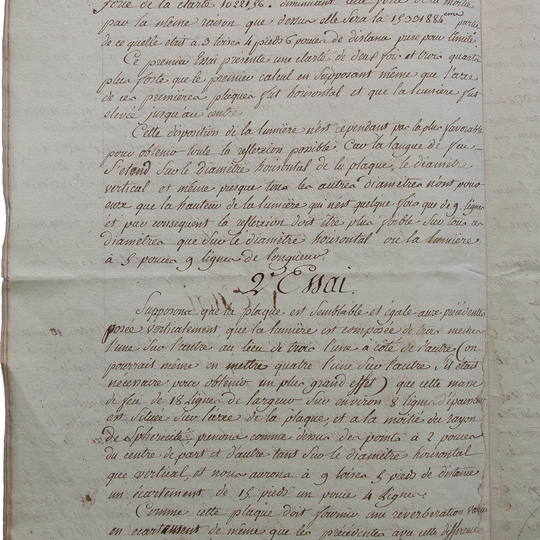 force de la clarté 1022136. diminuant cette force de la moitié
par la même raison que dessus elle sera la 1533188 4eme partie
de ce quelle etait à 3 toises 4 pieds 6 pouces de distance prise pour l'unité.
Ce premier Essai présente une clarté de deux fois et trois quarts
plus forte que le premier calcul en supposant même que l'axe
de ces premieres plaques fut horisontal et que la lumière fut
elevée jusqu'au centre.
Cette disposition de la lumière n'est cependant pas la plus favorable
pour obtenir toute la reflexion possible. Car la langue de feu
s'etend sur le diamètre horisontal de la plaque, le diamètre
vertical et même presque tous les autres diamètres n'ont pour
eux que la hauteur de la lumière qui n'est quelque fois que de 9 lignes
et par consequent la reflexion doit être plus foible sur tous ces
diametres que sur le diamètre horisontal ou la lumiere
à 5 pouces 9 lignes de longueur.
2e Essai.
Supposons que la plaque est semblable et egale aux précédentes
posée verticalement que la lumière est composée de trois meches
l'une sur l'autre au lieu de trois l'une à côté de l'autre (on
pourrait même en mettre quatre l'une sur l'autre s'il était
nécessaire pour obtenir un plus grand effet) que cette masse
de feu de 18 lignes de largeur sur environ 8 lignes d'épaisseur
est située sur l'axe de la plaque, et a la moitié du rayon
de sphericité, prenons comme dessus des points à 2 pouces
du centre de part et d'autre tant sur le diamètre horisontal
que vertical, et nous aurons à 9 toises 5 pieds de distance
un ecartement de 15 pieds un pouce 4 lignes.
Comme cette plaque doit fournir une reverberation
en ecartement de même que les précédentes avec cette difference